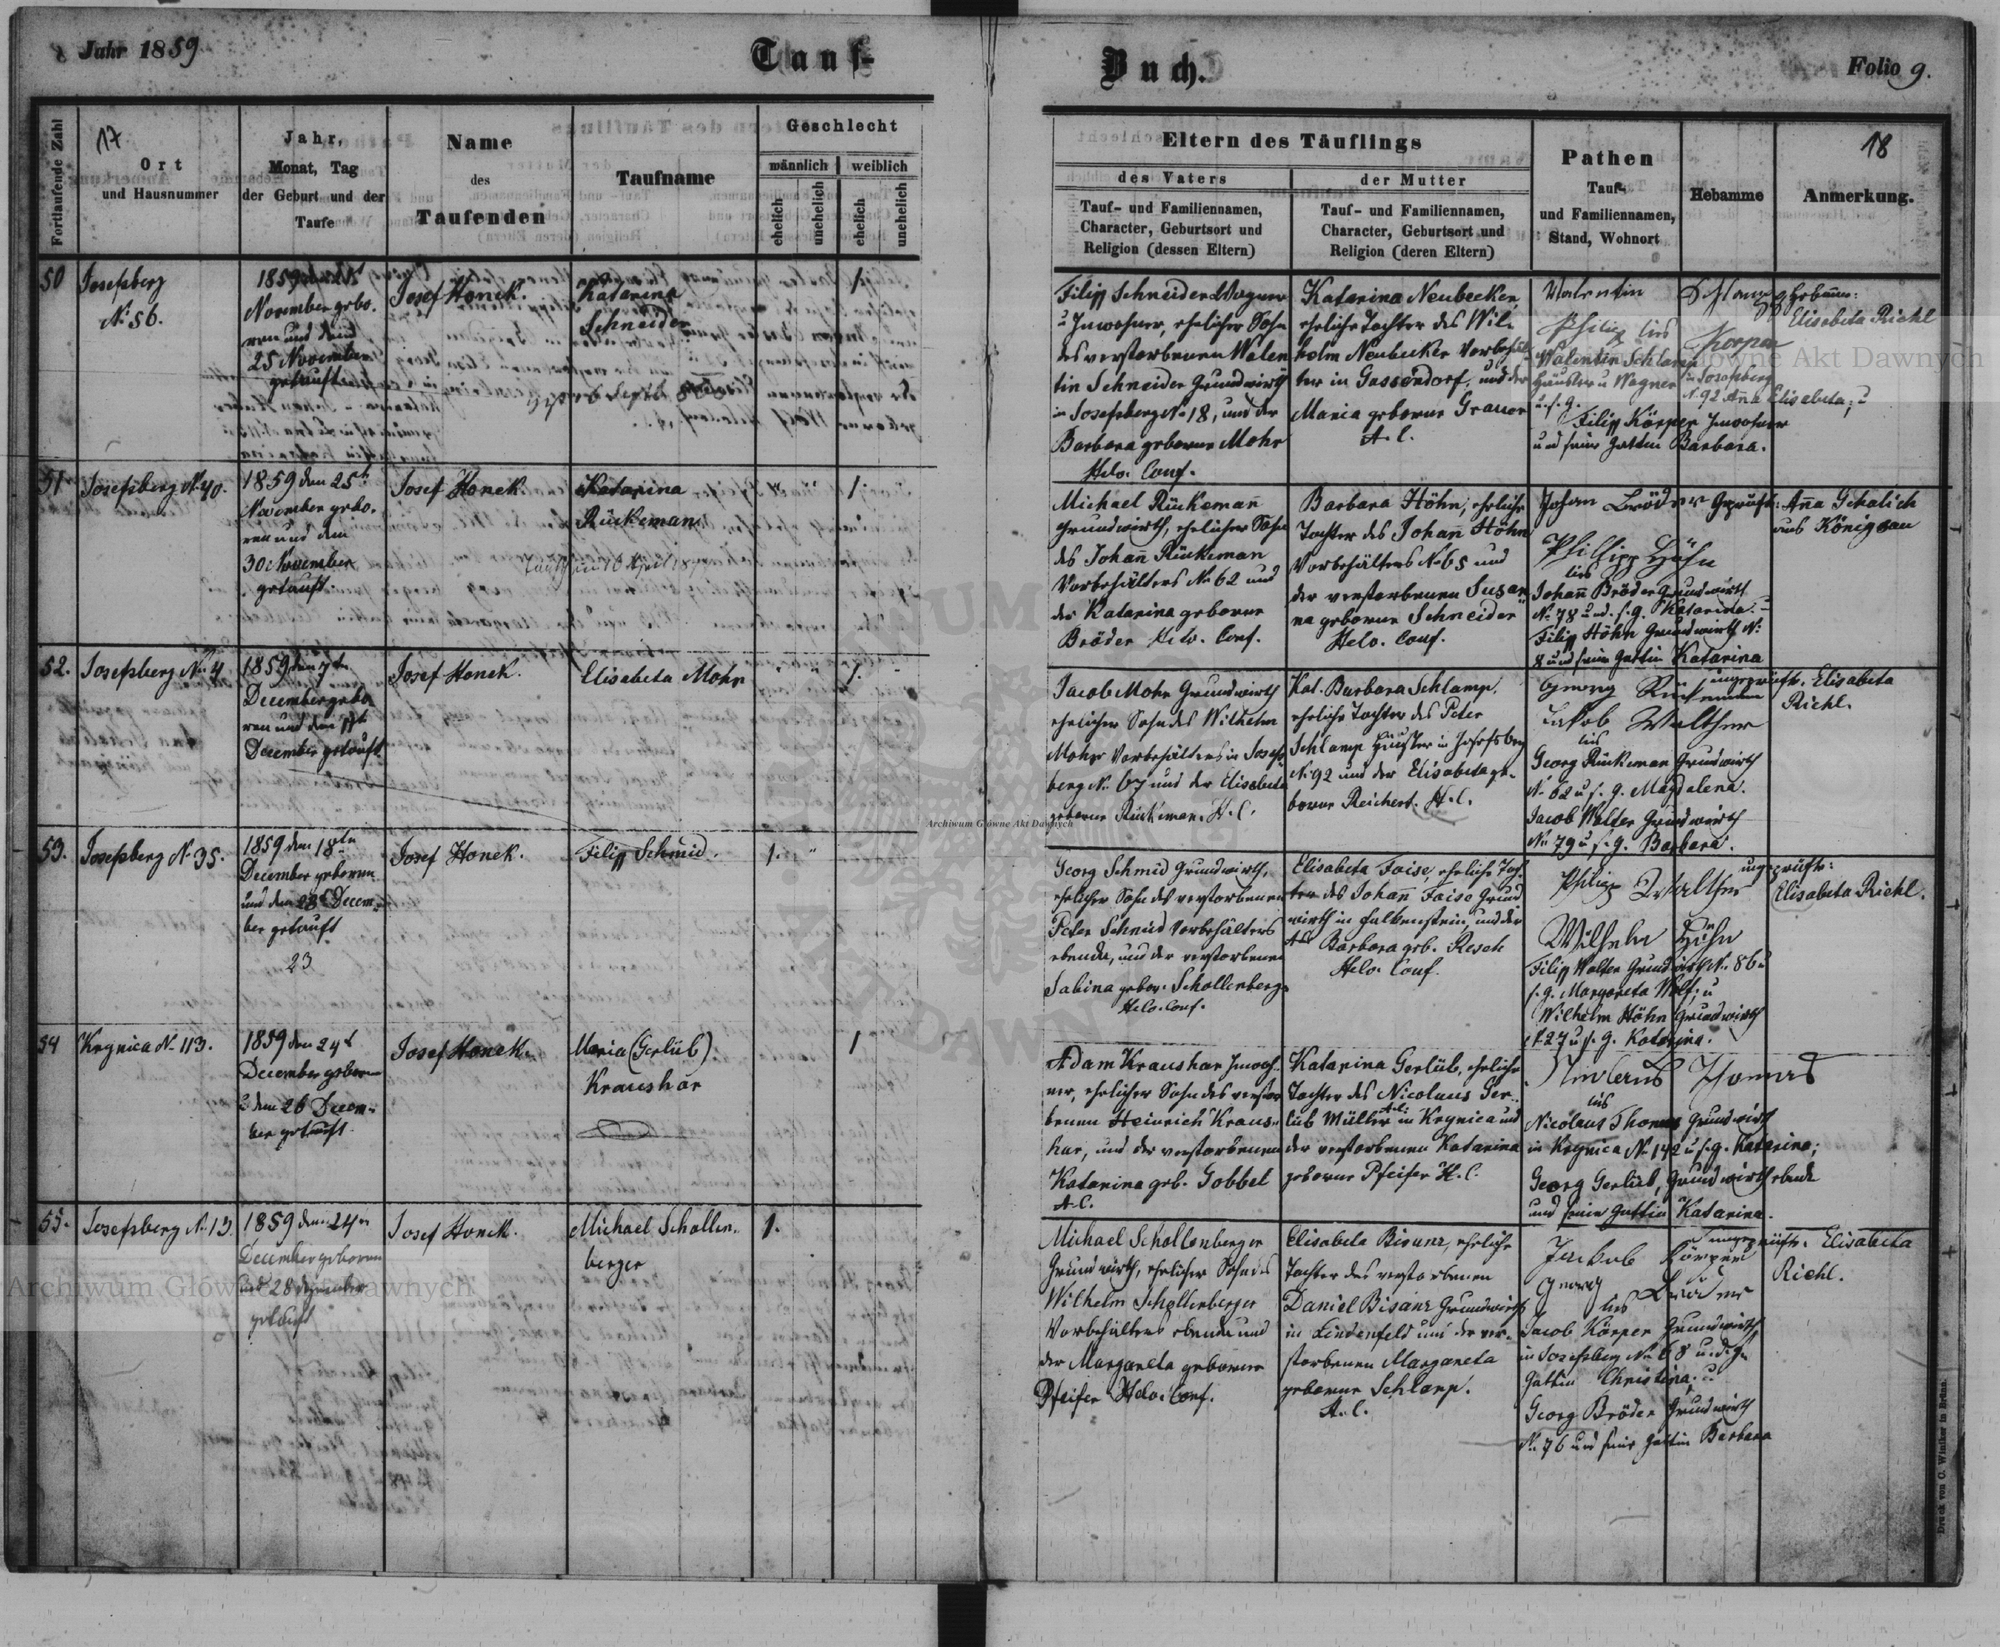 Jahr 1859
Tauf-
Buch.
Folio 9.
Fortlaufende Zahl
17
Ort
und Hausnummer
Jahr,
Monat, Tag
der Geburt und der
Taufe
Name
des
Taufenden
Taufname
Geschlecht
männlich
weiblich
ehelich
unehelich
ehelich
unehelich
Eltern des Täuflings
des Vaters
der Mutter
Tauf- und Familiennamen,
Character, Geburtsort und
Religion (dessen Eltern)
Tauf- und Familiennamen,
Character, Geburtsort und
Religion (deren Eltern)
Pathen
Tauf-
und Familiennamen,
Stand, Wohnort
Hebamme
18
Anmerkung.
50
Josefsberg
N. 56.
1859 den 25t
November gebo,
ren und den
25 November
getauft
Josef Honek.
Katarina
Schneider
1.
Filipp Schneider Wagner
u Inwohner, ehelicher Sohn
des verstorbenen Walen
tin Schneider Grundwirth
in Josefsberg N. 18, und der
Barbara geborne Mohr
Helv. Conf.
Katarina Neubecker,
eheliche Tochter des Wil-
helm Neubecker Vorbehäl-
ter in Gassendorf, und der
Maria geborne
A. C.
Valentin Schlamp
Philip Korper
Walentin Schlamp
Häusler u Wagner in Josefsberg
N. 92 Ana Elisabeta; u
u. s. g.
Filipp Körper Inwohner
und seine Gattin Barbara.
Elisabeta Riehl
51.
Josefsberg N. 40.
1859 den 25t
November gebo,
ren und den
30 November
getauft.
Josef Honek.
Katarina
Rückeman
1.
Michael Rückemann
Grundwirth, ehelicher Sohn
des Johann Rückeman
Vorbehälters N. 62 und
der Katarina geborne
Bröder Helv. Conf.
Barbara Höhn, eheliche
Tochter des Johann Höhn
Vorbehälters N. 65 und
der verstorbenen Susan
na geborne Schneider
Helv. Conf.
Johan Bröder
Philipp Höhn
Johann Bröder Grundwirth
N. 78 und s. g. Katarina u
Filip Höhn Grundwirth N.
8 und seine Gattin Katarina
Geprüft: Anna Gehalich
aus Königsau
52.
Josefsberg N. 4
1859 den 7ten
December gebo
ren und den 11t
December getauft.
Josef Honek.
Elisabeta Mohr
1.
Jacob Mohr Grundwirth
ehelicher Sohn des Wilhelm
Mohr Vorbehälters in Josefs
berg N. 67 und der Elisabeta
geborne Rückeman. H. C.
Kat. Barbara Schlamp,
eheliche Tochter des Peter
Schlamp Häusler in Josefsberg
N. 92 und der Elisabeta ge-
borne Reichert. H. C.
Georg Rückeman
Jakob Walther
Georg Rückeman Grundwirth
N. 62 u s. g. Magdalena.
Jacob Walter Grundwirth
N. 79 u s. g. Barbara.
ungeprüft. Elisabeta
Riehl.
53.
Josefsberg N. 35.
1859 den 18ten
December geboren
und den 28t Decem-
ber getauft
23
Josef Honek.
Filipp Schmid.
1.
Georg Schmid Grundwirth,
ehelicher Sohn des verstorbenen
Peter Schmid Vorbehälters
ebenda, und der verstorbenen
Sabina gebor. Schollenberger
Helv. Conf.
Elisabeta Faise, eheliche Toch-
ter des Johann Faise Grund
wirth in Falkenstein, und der
Barbara geb. Resch
Helv. Conf.
Philipp Walther
Wilhelm Höhn
Filipp Walter Grundwirth N. 86 u
s. g. Margareta Wolf; u
Wilhelm Höhn Grundwirth
N 27 u s. g. Katarina.
ungeprüft:
Elisabeta Riehl.
54
Krynica N. 113.
1859 den 24t
December geboren
u den 26 Decem-
ber getauft.
Josef Honek.
Maria (Gerlüb)
Kraushar
1
Adam Kraushar Inwoh-
ner, ehelicher Sohn des verstor
benen Heinrich Kraus-
har, und der verstorbenen
Katarina geb. Gobbel
A. C.
Katarina Gerlüb, eheliche
Tochter des Nicolaus Ger-
lüb Müller A. C. in Krynica und
der verstorbenen Katarina
geborne Pfeifer H. C.
Nicolaus Thomas
Nicolaus Thomas Grundwirth
in Krynica N. 142 u s. g. Katarina;
Georg Gerlüb, Grundwirth ebenda
und seine Gattin Katarina.
55.
Josefsberg N. 13.
1859 den 24ten
December geboren
und 28 Dezember
getauft
Josef Honek.
Michael Schollen-
berger
1.
Michael Schollenberger
Grundwirth, ehelicher Sohn des
Wilhelm Schollenberger
Vorbehälters ebenda und
der Margareta geborne
Pfeifer Helv. Conf.
Elisabeta Bisanz, eheliche
Tochter des verstorbenen
Daniel Bisanz Grundwirths
in Lindenfeld und der ver-
storbenen Margareta
geborne Schlamp.
A. C.
Jakob Körper
Georg Bröder
Jacob Körper Grundwirth
in Josefsberg N. 68 u. s. g.
Gattin Christina, u
Georg Bröder Grundwirth
N. 76 und seine Gattin Barbara
ungeprüft. Elisabeta
Riehl.
Archiwum Główne Akt Dawnych
Druck von C. Winiker in Brünn.